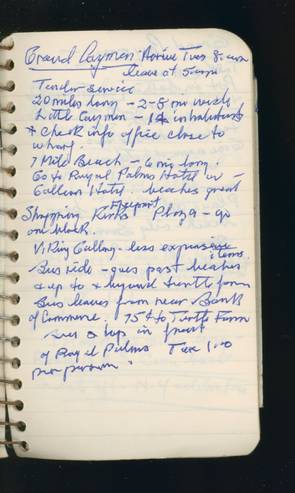 Grand Cayman Arrive Tues 8:am
leave at 5:pm
Tender service
20 miles long – 2-8 mi wide
Little Cayman – inhabitants
& Check info office close to
wharf.
7 Mile Beach – 6 mi long.
Go to Royal Palms Hotel or –
Galleon Hotel. beaches great
Shopping Kirk Freeport Plaza – go
one block.
Viking Gallery – less expensive
items.
Bus ride – goes past beaches
& up to & beyond turtle farm
Bus leaves from near Bank
of Commerce. 75¢ to Turtle Farm
bus stop in front
of Royal Palms 1.00
per person